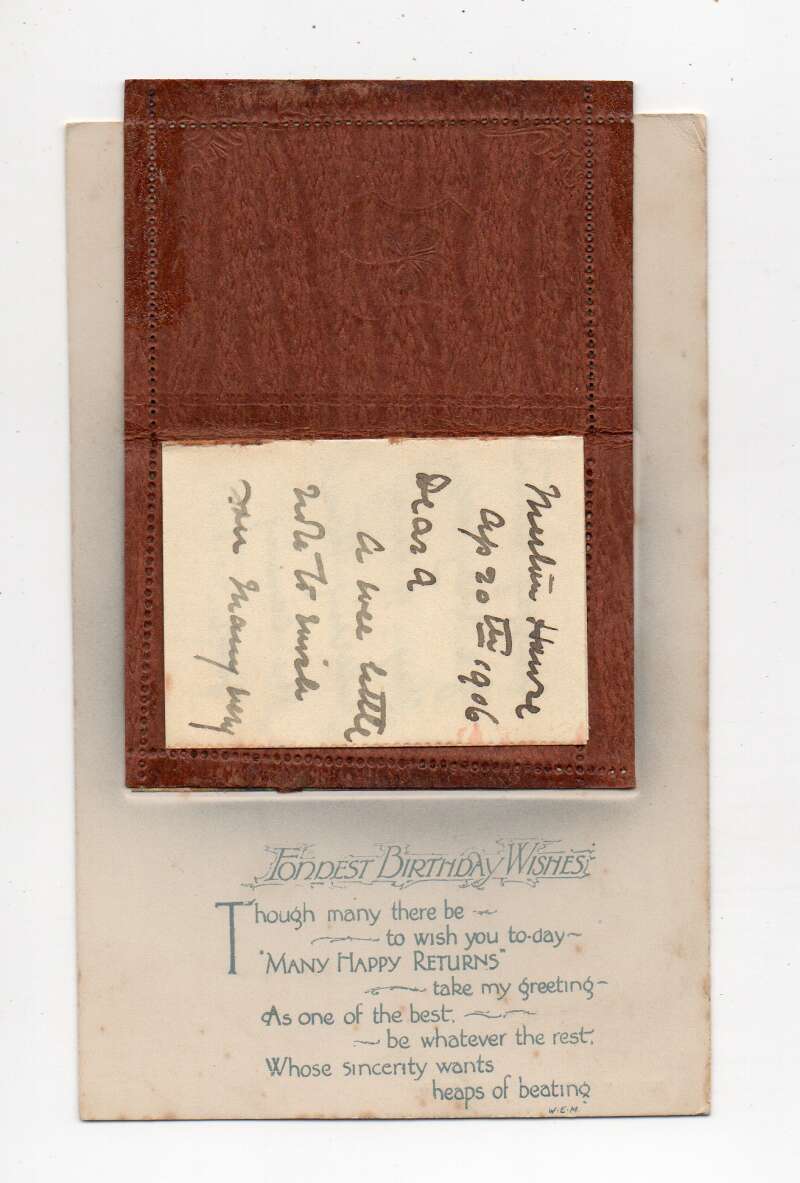 House
Ap 20th 1906
Dear A
A wee little
note to wish
you many very
FONDEST BIRTHDAY WISHES.
Though many there be
to wish you to-day
"MANY HAPPY RETURNS"
take my greeting
As one of the best.
be whatever the rest.
Whose sincerity wants
heaps of beating
W.E.M.